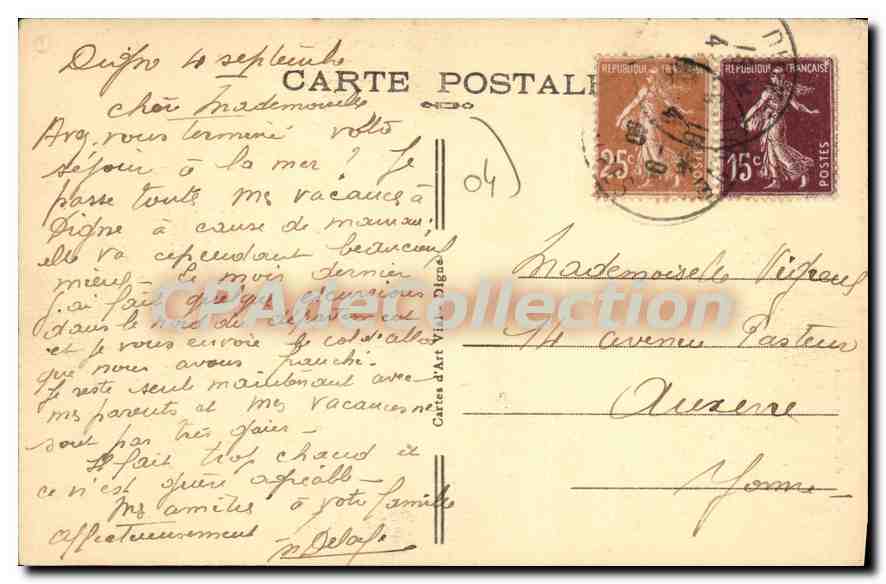 Digne 4 septembre
CARTE POSTALE
chère Mademoiselle
Avez vous terminé votre
séjour à la mer ? Je
passe toutes mes vacances à
Digne à cause de maman.
elle va cependant beaucoup
mieux - Le mois dernier
j'ai fait quelques excursions
dans le nord du département
et je vous envoie le col d'allos
que nous avons franchi.
Je reste seule maintenant avec
mes parents et mes vacances ne
sont pas très gaies -
Il fait trop chaud et
ce n'est guère agréable -
Mes amitiés à votre famille
affectueusement
04
Cartes d'Art Vial - Digne
REPUBLIQUE FRANÇAISE
25c
REPUBLIQUE FRANÇAISE
15c
POSTES
Mademoiselle
14 avenue Pasteur
Auxerre
Yonne
CPAdeCollection.com